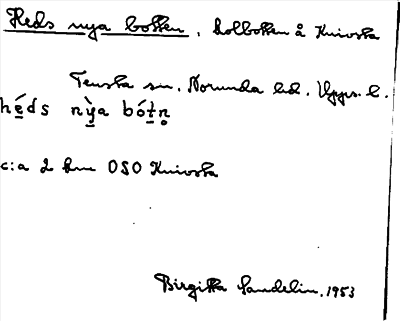 Heds nya botten, kolbotten å Knivsta
Tensta sn. Norunda hd. Upps. l.
héds nỳa bótn̥
c:a 2 km OSO Knivsta
Birgitta Sandelin, 1953